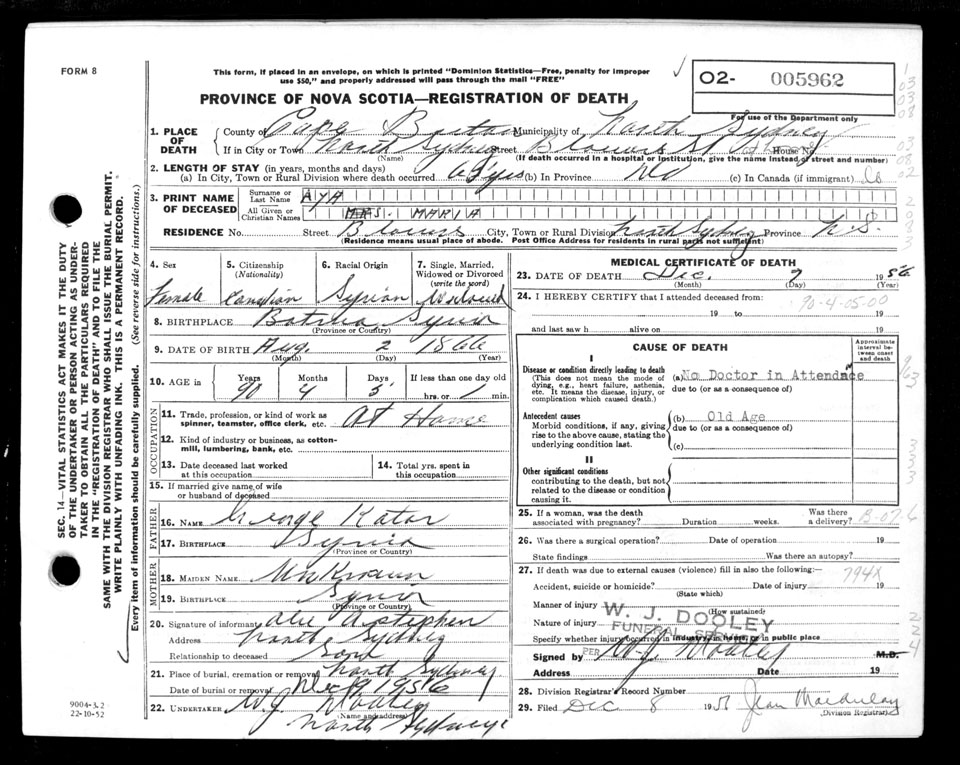 FORM 8
This form, if placed in an envelope, on which is printed "Dominion Statistics—Free, penalty for improper
use $50," and properly addressed will pass through the mail "FREE"
O2- 005962
For use of the Department only
PROVINCE OF NOVA SCOTIA—REGISTRATION OF DEATH
1. PLACE OF DEATH
County of Cape Breton Municipality of North Sydney
If in City or Town North Sydney Street Blowers St House No.
(Name) (If death occurred in a hospital or institution, give the name instead of street and number)
2. LENGTH OF STAY (in years, months and days)
(a) In City, Town or Rural Division where death occurred 65 yrs (b) In Province (c) In Canada (if immigrant)
3. PRINT NAME OF DECEASED
Surname or Last Name AYA
All Given or Christian Names MRS. MARIA
RESIDENCE No. Street Blowers City, Town or Rural Division North Sydney Province N.S.
(Residence means usual place of abode. Post Office Address for residents in rural parts not sufficient)
4. Sex Female
5. Citizenship (Nationality) Canadian
6. Racial Origin Syrian
7. Single, Married, Widowed or Divorced (write the word) Widowed
8. BIRTHPLACE Syria
(Province or Country)
9. DATE OF BIRTH Aug. 2 1866
(Month) (Day) (Year)
10. AGE in Years 90 Months 4 Days 5 If less than one day old
hrs. or min.
OCCUPATION
11. Trade, profession, or kind of work as
spinner, teamster, office clerk, etc. At Home
12. Kind of industry or business, as cotton-
mill, lumbering, bank, etc.
13. Date deceased last worked
at this occupation
14. Total yrs. spent in
this occupation
15. If married give name of wife
or husband of deceased
FATHER
16. NAME George Kator
17. BIRTHPLACE Syria
(Province or Country)
MOTHER
18. MAIDEN NAME Unknown
19. BIRTHPLACE Syria
(Province or Country)
20. Signature of informant
Address North Sydney
Relationship to deceased Son
21. Place of burial, cremation or removal North Sydney
Date of burial or removal Dec 9 1956
22. UNDERTAKER W.J. Dooley
(Name and address)
North Sydney
MEDICAL CERTIFICATE OF DEATH
23. DATE OF DEATH Dec. 7 1956
(Month) (Day) (Year)
24. I HEREBY CERTIFY that I attended deceased from:
90-4-05-00
19 to 19
and last saw h alive on 19
CAUSE OF DEATH
Approximate interval between onset and death
I
Disease or condition directly leading to death
(This does not mean the mode of
dying, e.g., heart failure, asthenia,
etc. It means the disease, injury, or
complication which caused death.)
(a) No Doctor in Attendance
due to (or as a consequence of)
Antecedent causes
Morbid conditions, if any, giving
rise to the above cause, stating the
underlying condition last.
(b) Old Age
due to (or as a consequence of)
(c)
II
Other significant conditions
contributing to the death, but not
related to the disease or condition
causing it.
25. If a woman, was the death
associated with pregnancy? Duration weeks. Was there
a delivery? B-07
26. Was there a surgical operation? Date of operation 19
State findings Was there an autopsy?
27. If death was due to external causes (violence) fill in also the following:
794X
Accident, suicide or homicide? Date of injury 19
(State which)
Manner of injury
(How sustained)
W. J. DOOLEY
Nature of injury
FUNERAL
Specify whether injury occurred in industry, in home, or in public place
Signed by PER W.J. Dooley M.D.
Address Date 19
28. Division Registrar's Record Number
29. Filed Dec 8 19 Jean
(Division Registrar)
SEC. 14—VITAL STATISTICS ACT MAKES IT THE DUTY
OF THE UNDERTAKER OR PERSON ACTING AS UNDER-
TAKER TO OBTAIN ALL THE PARTICULARS REQUIRED
IN THE "REGISTRATION OF DEATH" AND TO FILE THE
SAME WITH THE DIVISION REGISTRAR WHO SHALL ISSUE THE BURIAL PERMIT.
WRITE PLAINLY WITH UNFADING INK. THIS IS A PERMANENT RECORD.
Every item of information should be carefully supplied. (See reverse side for instructions.)
9004-3.2
22-10-52